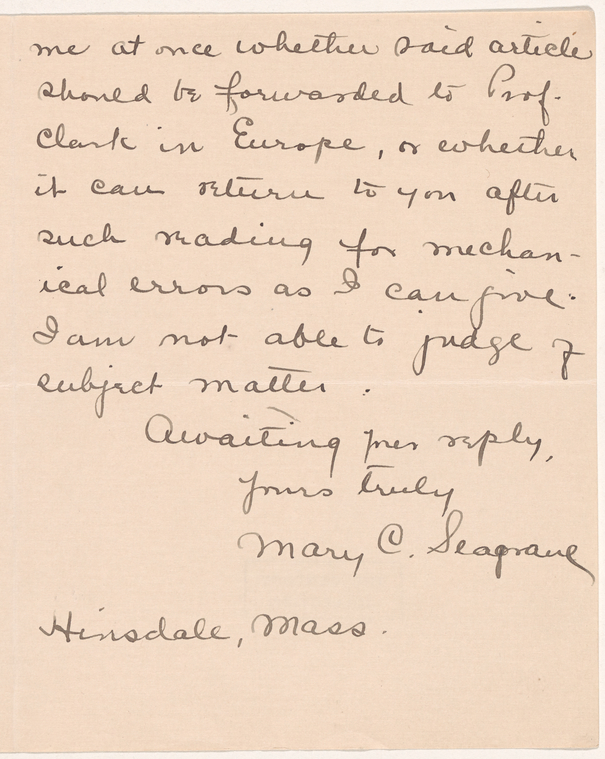 me at once whether said article
should be forwarded to Prof.
Clark in Europe, or whether
it can return to you after
such reading for mechan-
ical errors as I can give.
I am not able to judge of
subject matter.
Awaiting your reply,
Yours truly
Mary C. Seagrave
Hinsdale, Mass.